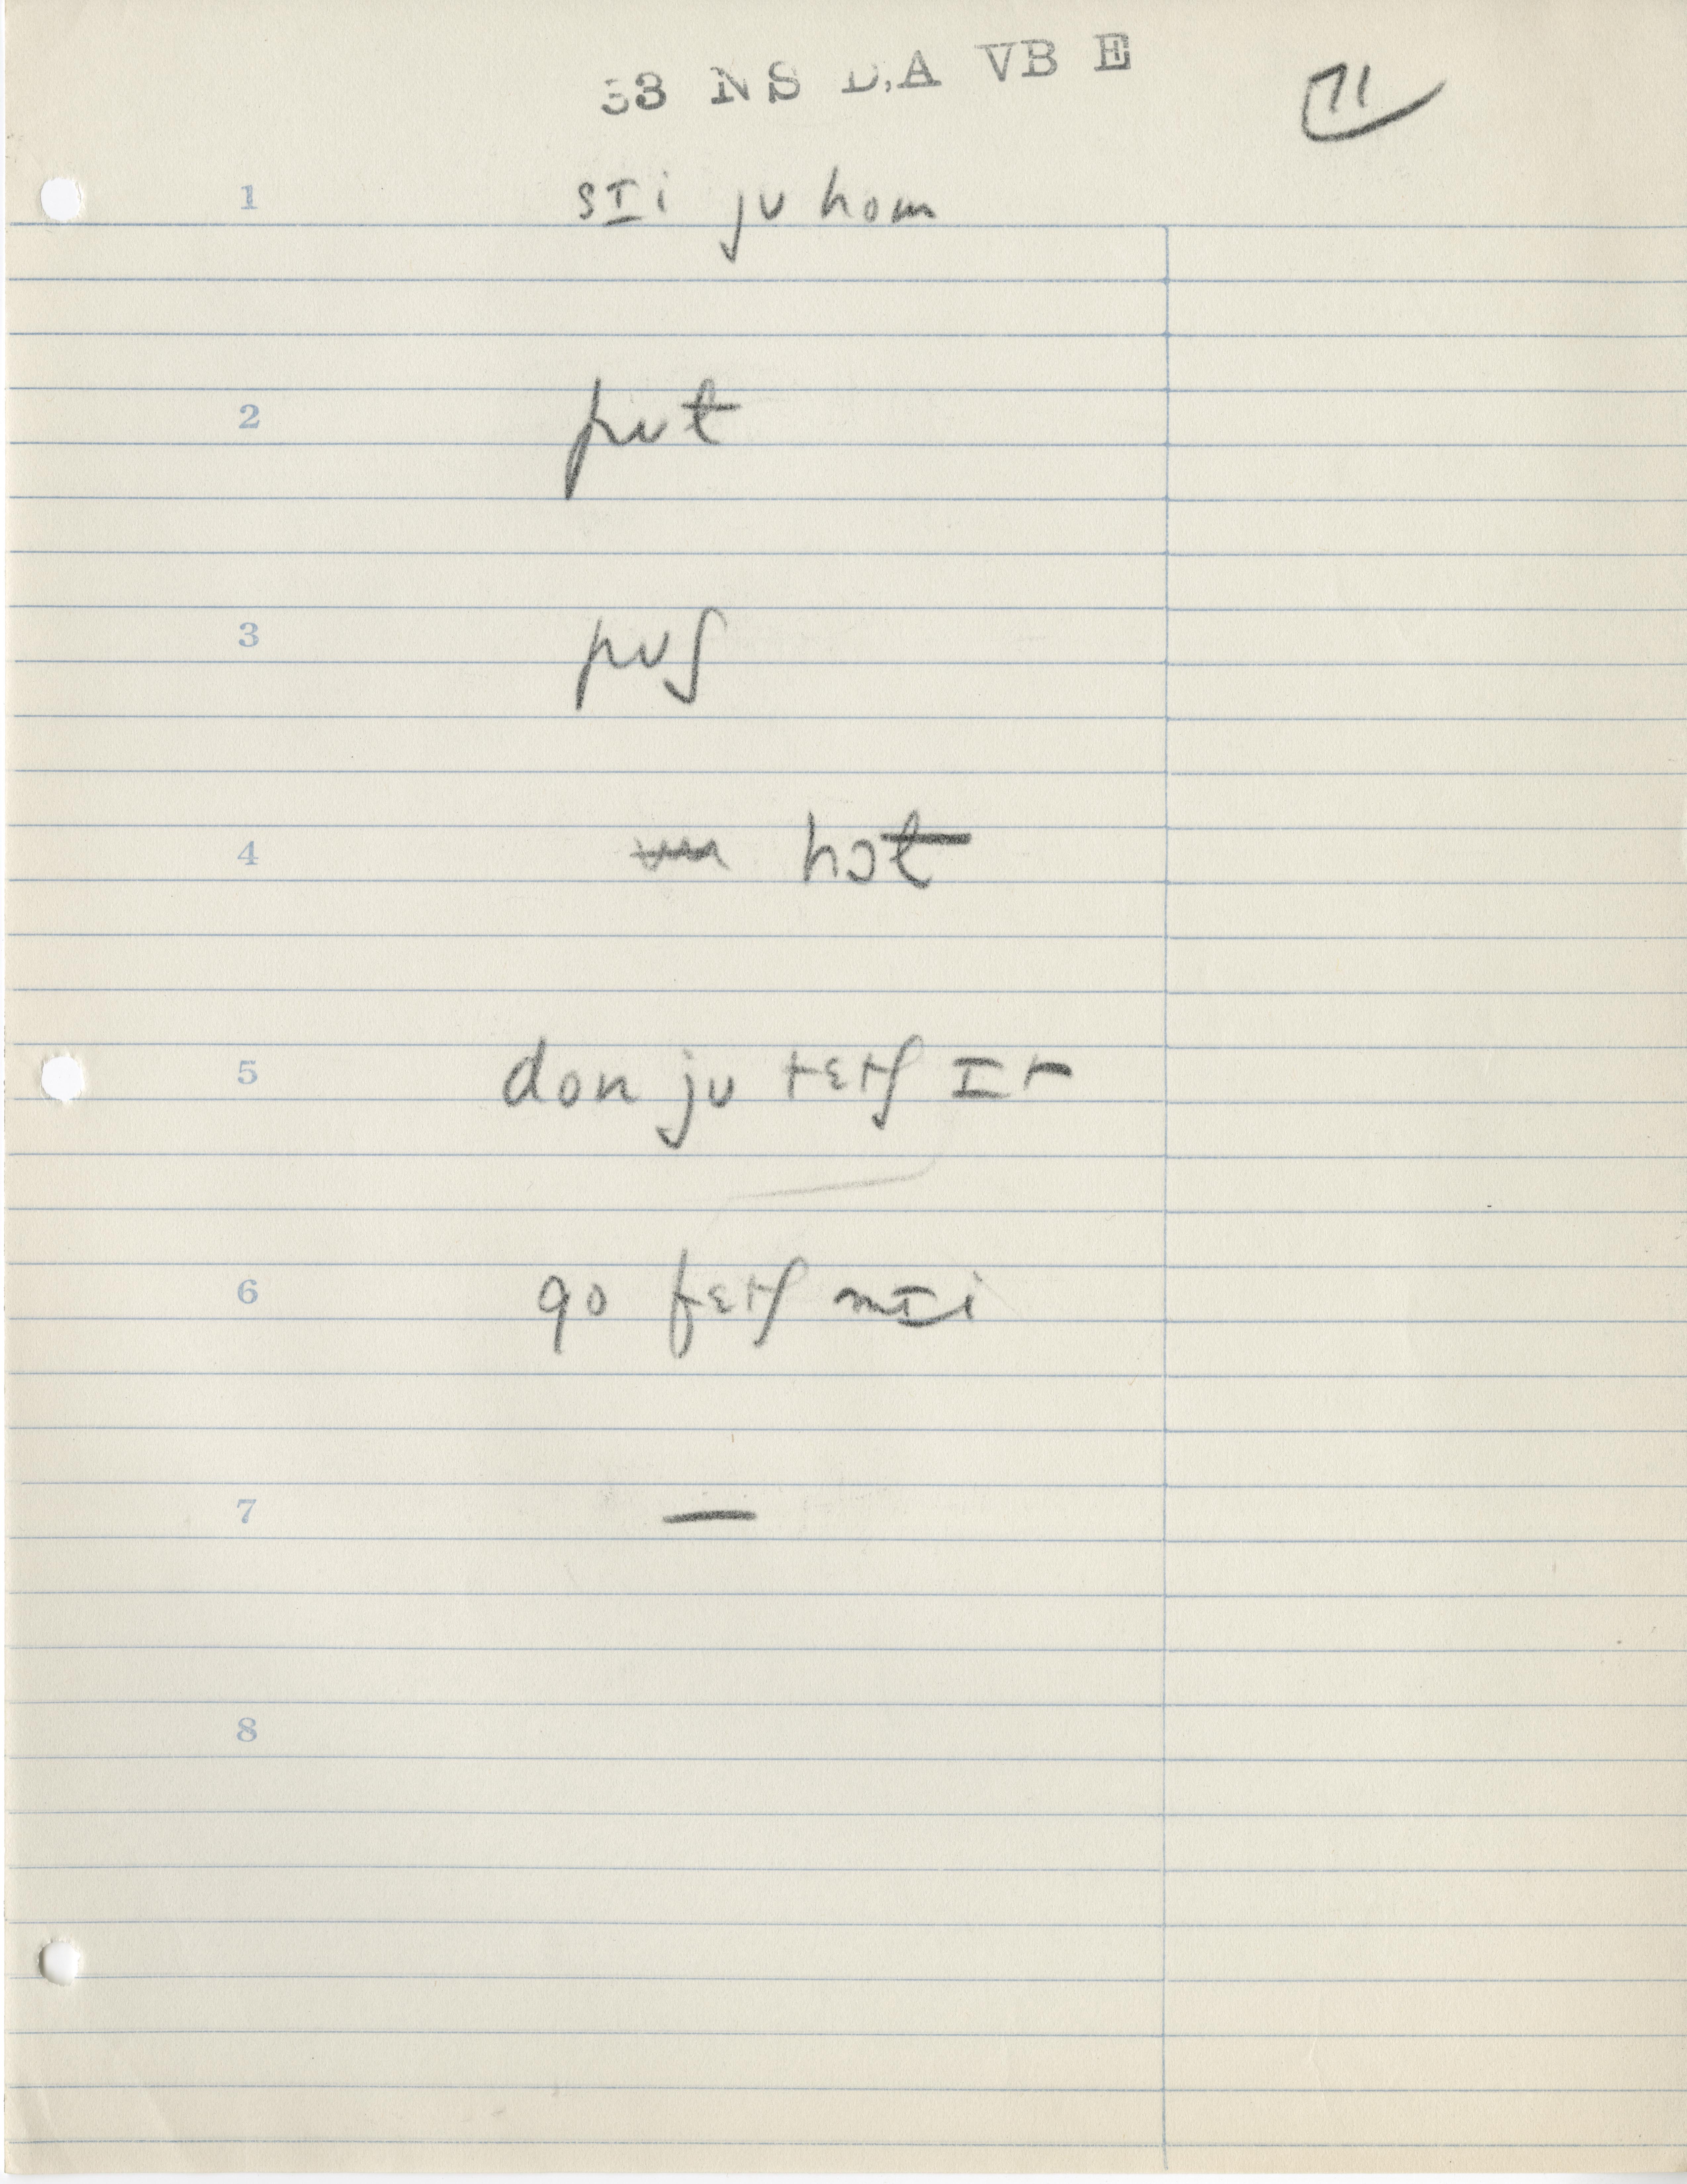 33 NS D.A VB E
71
1 sɪi jʊ hom
2 pʊt
3 pʊʃ
4 hɔt
5 don jʊ tɛtʃ ɪt
6 go fɛtʃ mɪi
7 —
8